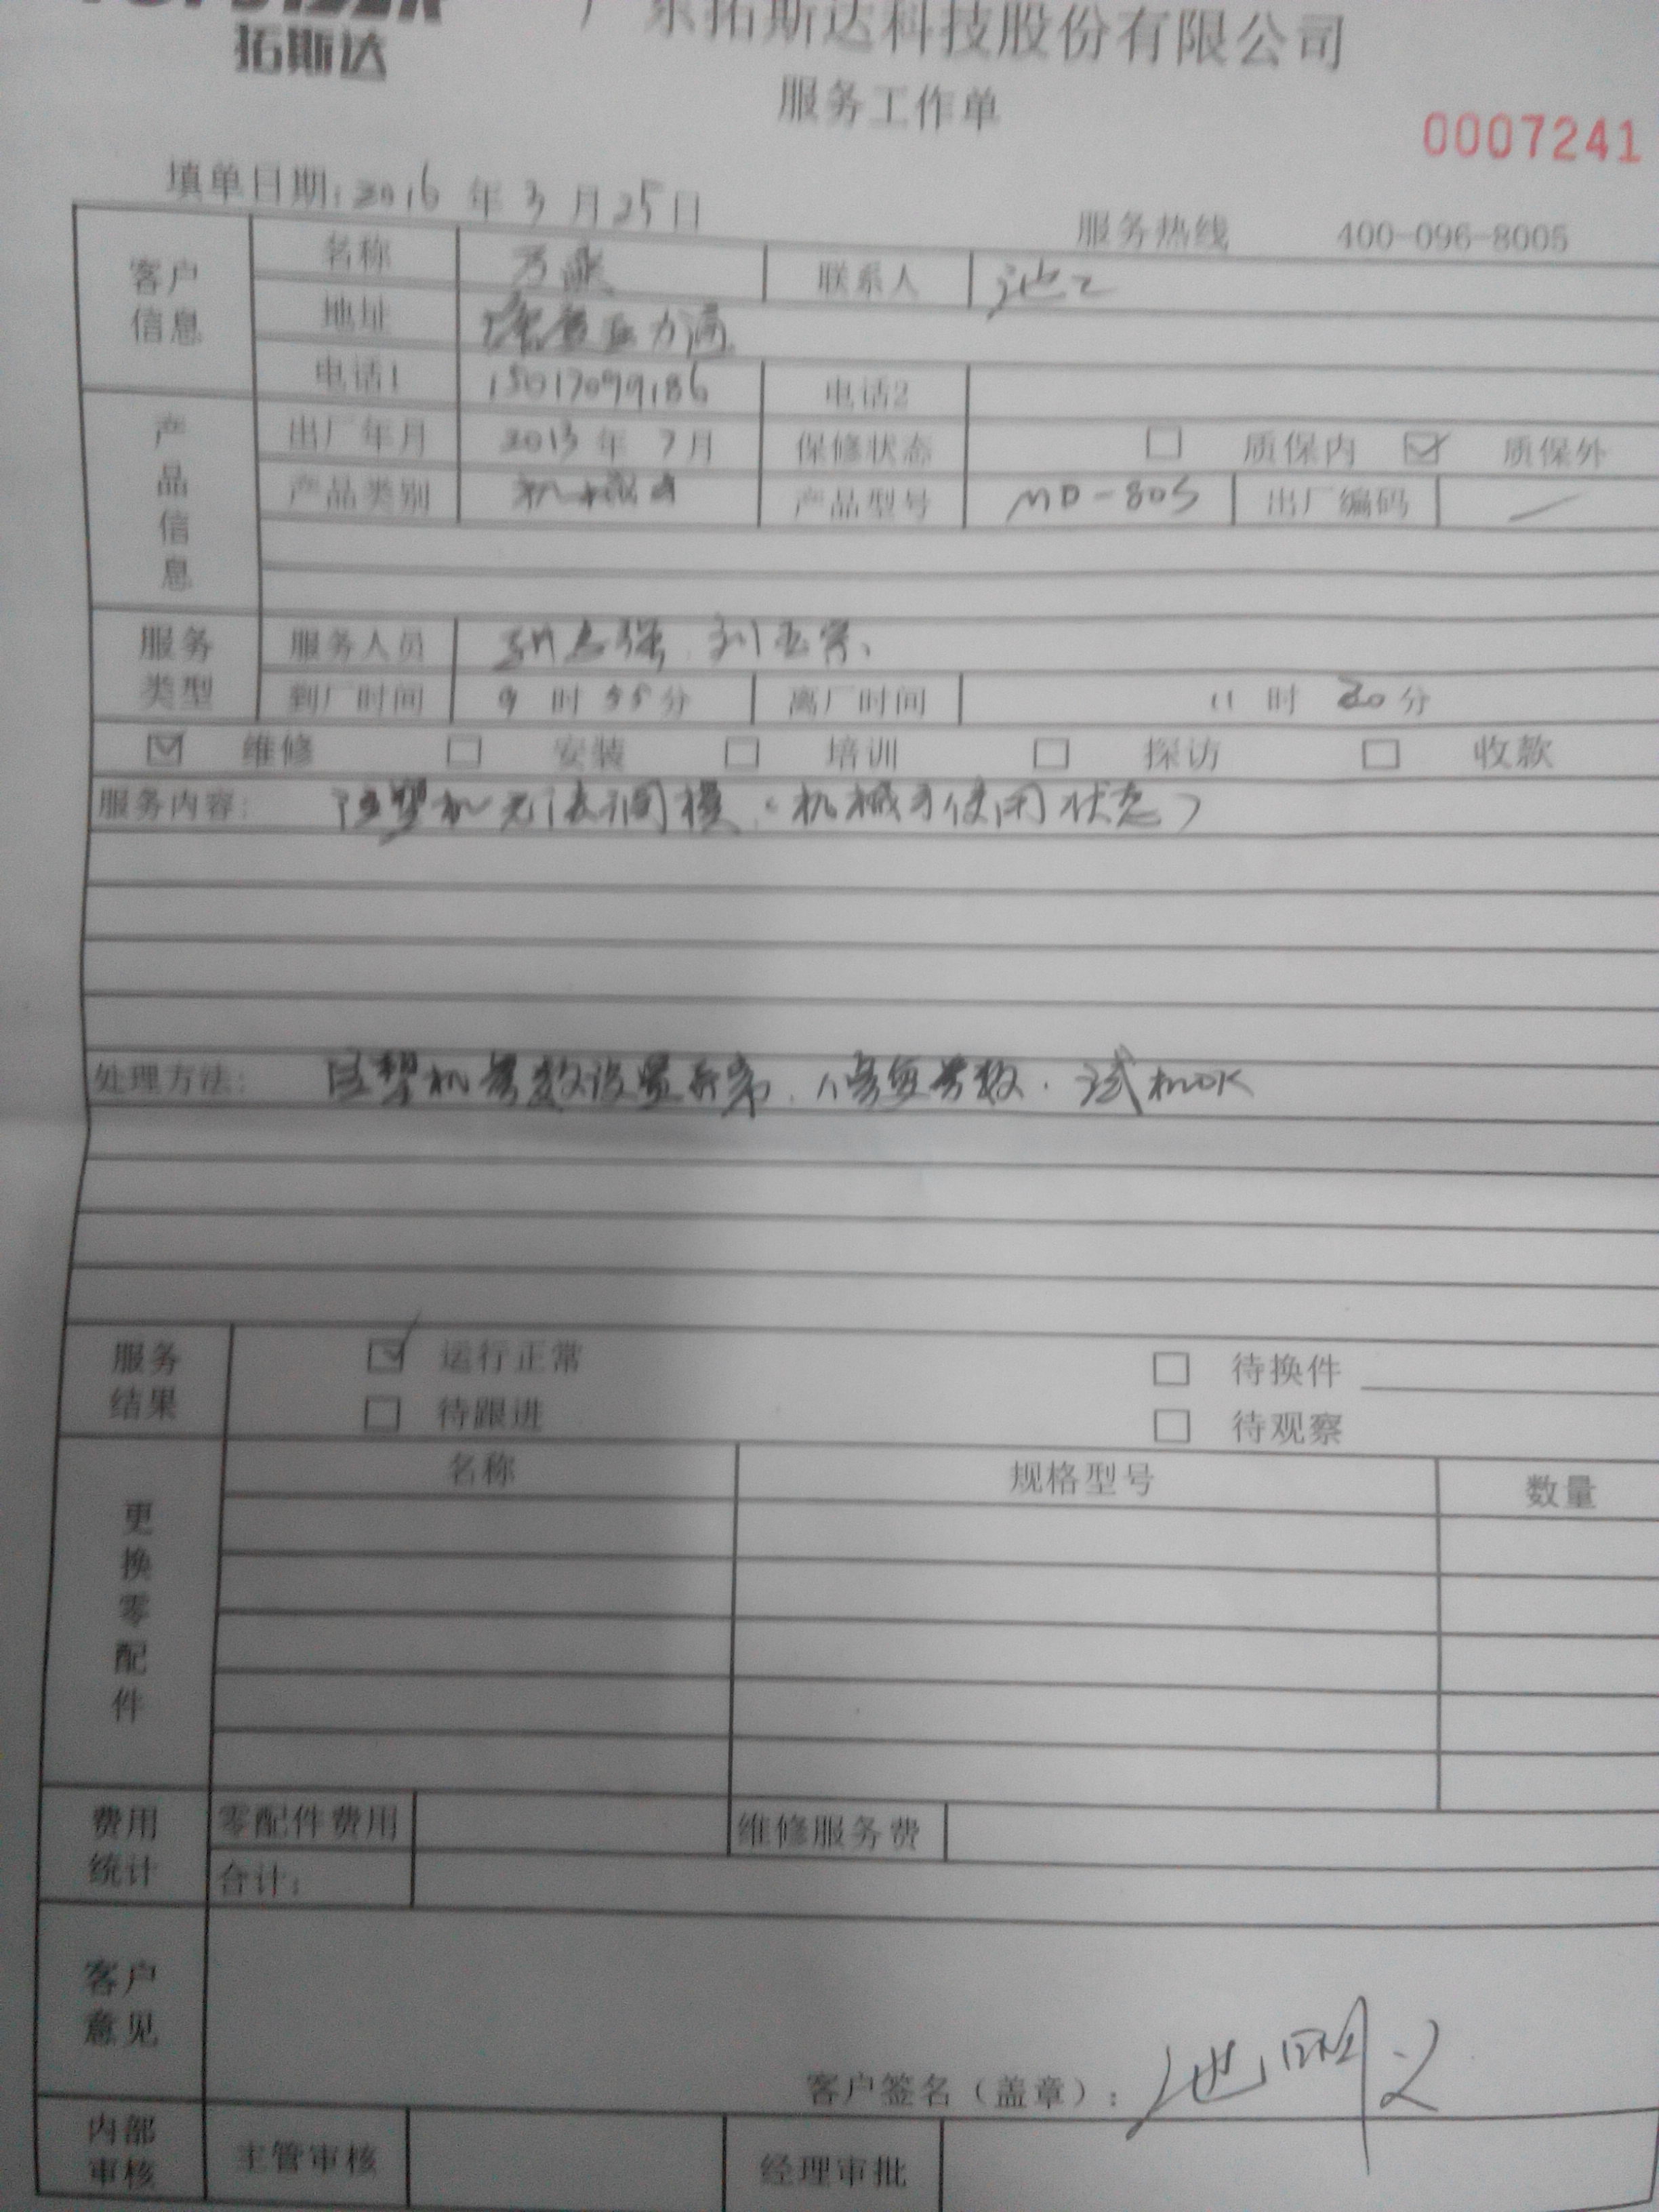 拓斯达
广东拓斯达科技股份有限公司
服务工作单
0007241
填单日期: 2016 年 3 月 25 日
服务热线 400-096-8005
客户信息
名称 联系人 池工
地址
电话1 15017099186 电话2
产品信息
出厂年月 2013 年 7 月 保修状态 □ 质保内 ☑ 质保外
产品类别 机械手 产品型号 MD-80S 出厂编码 /
服务类型
服务人员
到厂时间 9 时 55 分 离厂时间 11 时 20 分
☑ 维修 □ 安装 □ 培训 □ 探访 □ 收款
服务内容: 注塑机无法调模(机械手使用状态)
处理方法: 注塑机参数设置异常、修复参数.试机OK
服务结果
☑ 运行正常 □ 待换件
□ 待跟进 □ 待观察
更换零配件
名称 规格型号 数量
费用统计
零配件费用 维修服务费
合计:
客户意见
客户签名(盖章): 池明义
内部审核
主管审核 经理审批